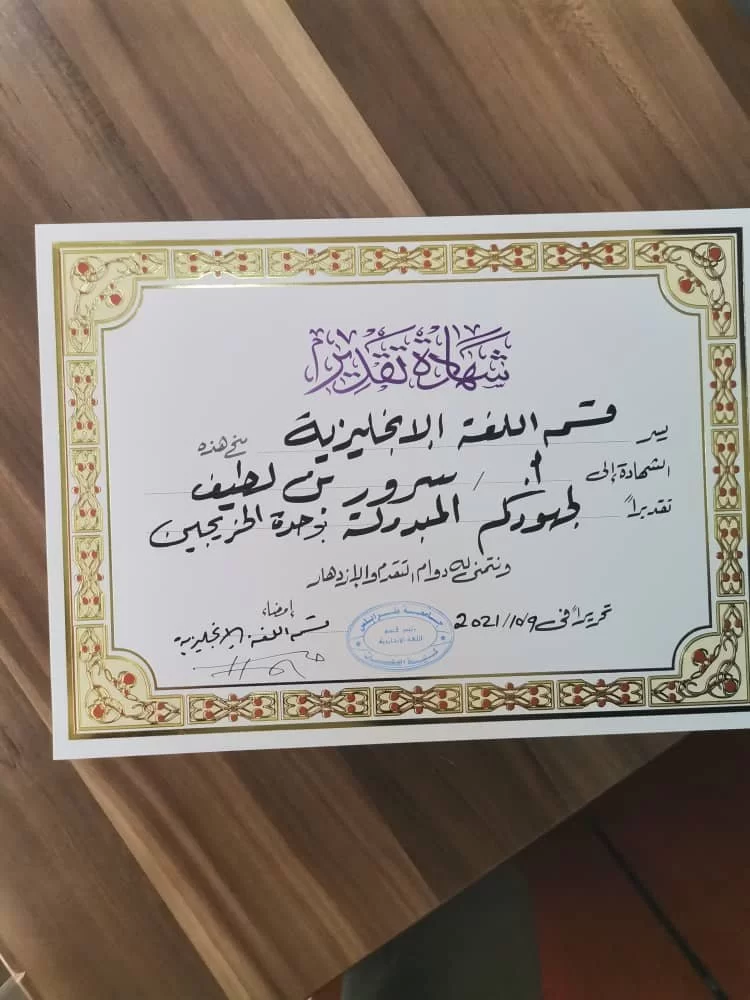 شهادة تقدير
يسر قسم اللغة الإنجليزية منح هذه
الشهادة إلى أ. / سرور بن لطيف
تقديراً لجهودكم المبذولة بوحدة الخريجين
ونتمنى له دوام التقدم والإزدهار
تحريراً في 2021/10/9
بإمضاء
قسم اللغة الإنجليزية
جامعة طرابلس
رئيس قسم
اللغة الإنجليزية